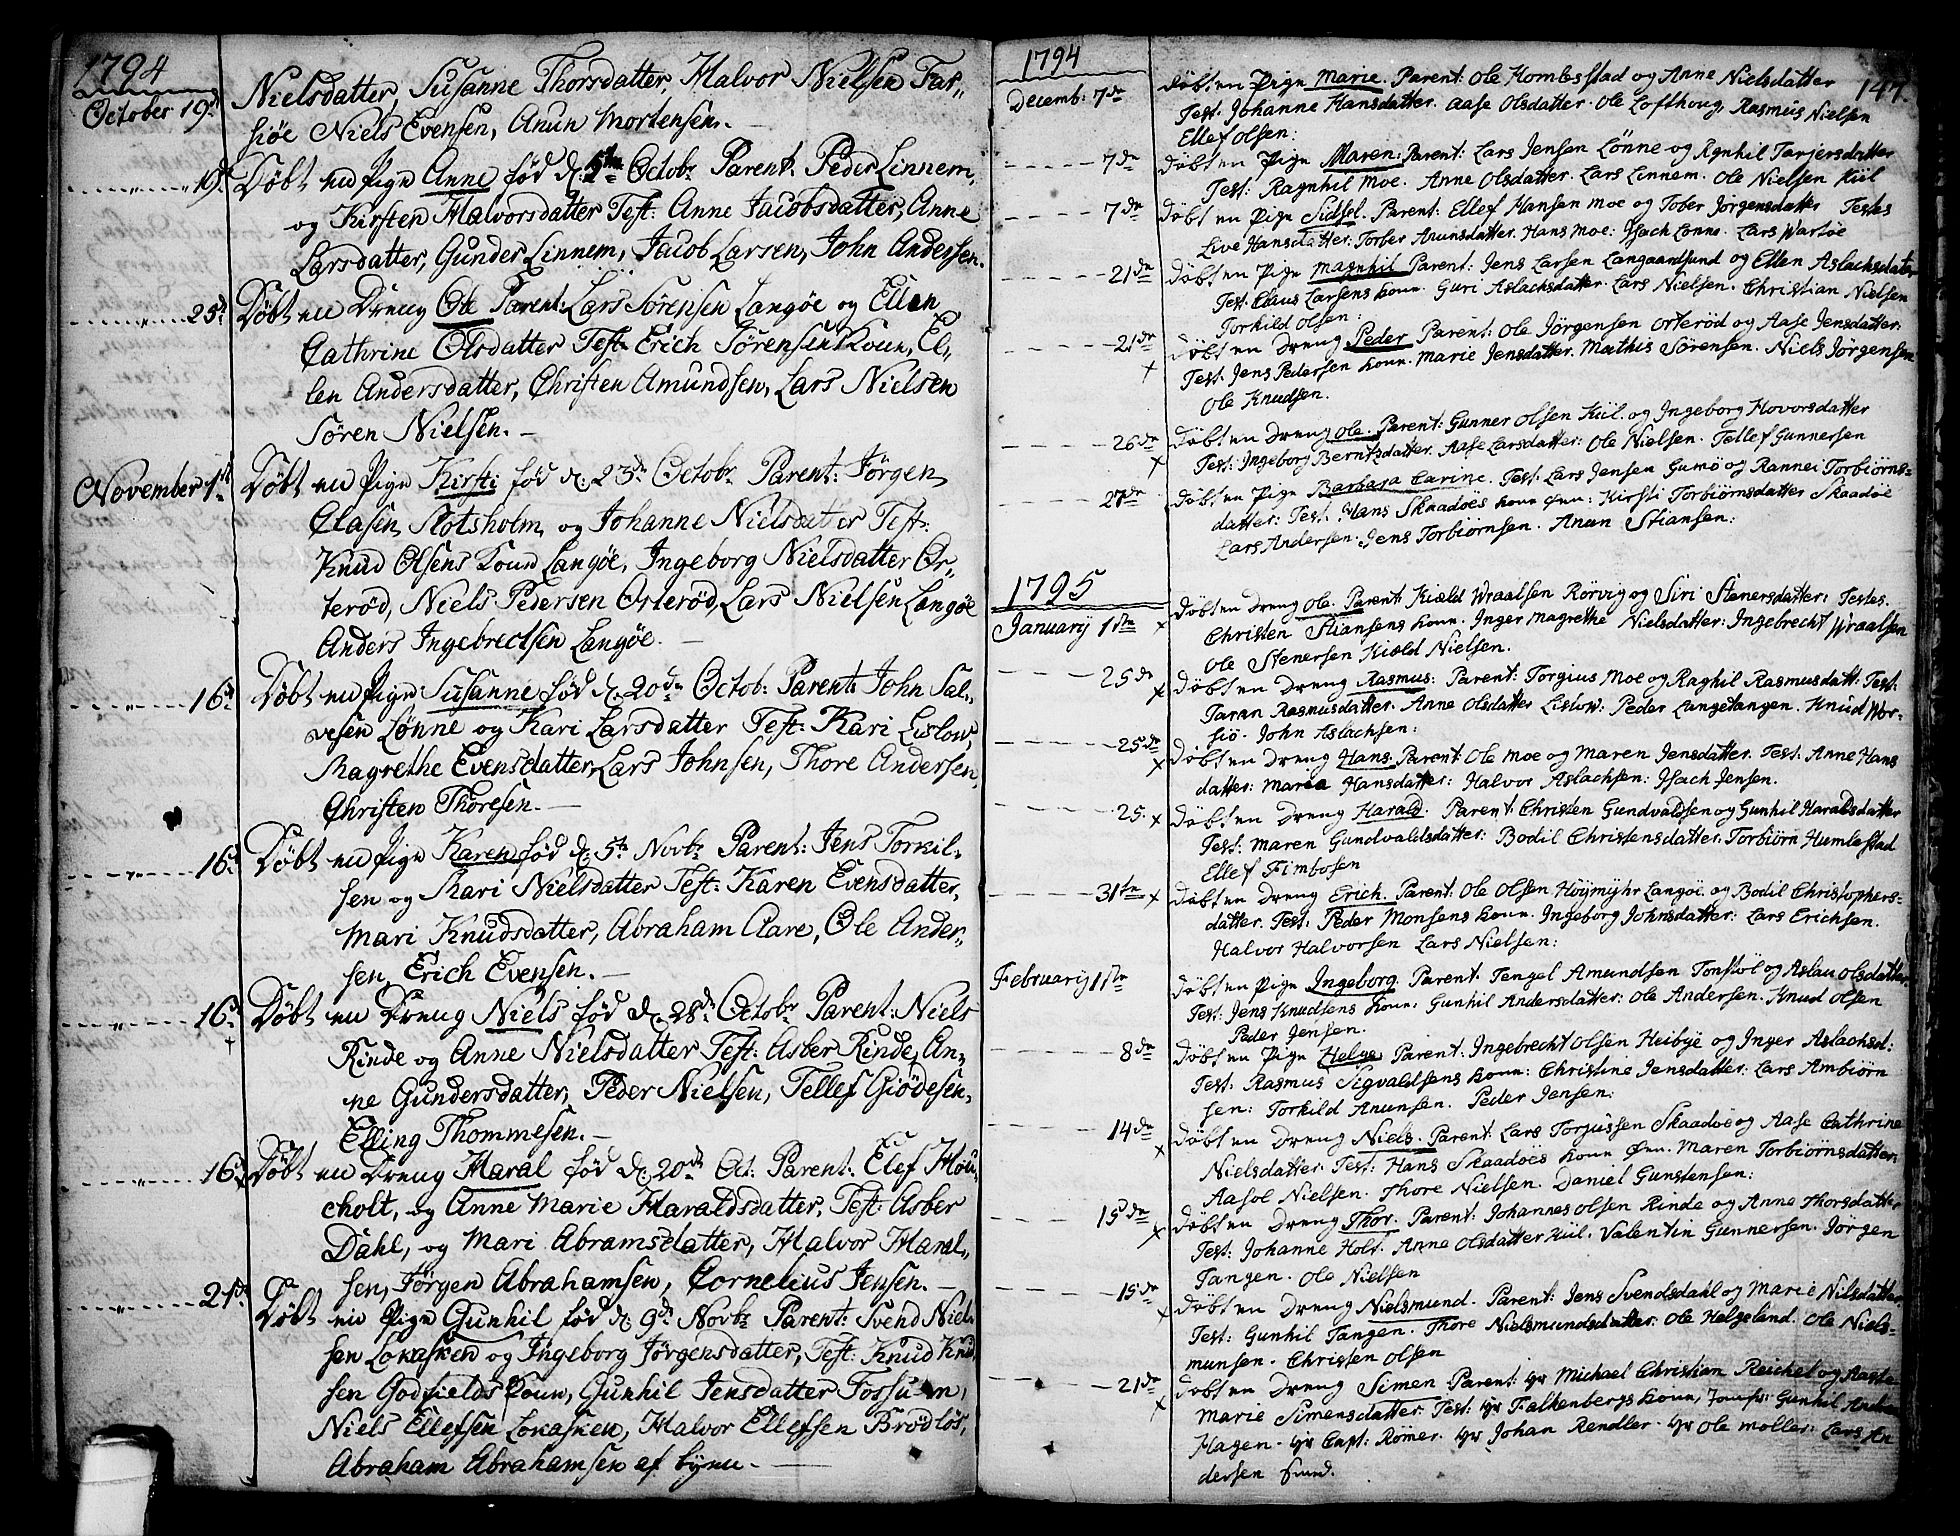 1794
October 19de
Nielsdatter, Susanne Thorsdatter, Halvor Nielsen Far-
siøe Niels Evensen, Anun Mortensen.
19de Døbt en Pige Anne fød d: 5te Octobr Parent: Peder Linnem,
og Kirsten Halvorsdatter Test: Anne Jacobsdatter, Anne
Larsdatter, Gunder Linnem, Jacob Larsen, John Andersen.
25de Døbt en Dreng Ole Parent: Lars Sörensen Langøe og Ellen
Cathrine Olsdatter Test: Erich Sörensens Koun, El-
len Andersdatter, Christen Amundsen, Lars Nielsen
Sören Nielsen.
November 1te Døbt en Pige Kirsti fød d: 23de Octobr Parent: Jörgen
Clasen Slotsholm og Johanne Nielsdatter Test:
Knud Olsens Koun Langøe, Ingeborg Nielsdatter Or-
terød, Niels Pedersen Orterød, Lars Nielsen Langøe
Anders Ingebrectsen Langøe.
16de Døbt en Pige Susanne fød d: 20de Octob: Parent: John Sal-
vesen Lønne og Kari Larsdatter Test: Kari Lislow,
Magrethe Evensdatter, Lars Johnsen, Thore Andersen,
Christen Thoresen.
16de Døbt en Pige Karen fød d: 5te Novbr Parent: Jens Torkil-
sen og Mari Nielsdatter Test: Karen Evensdatter,
Mari Knudsdatter, Abraham Aare, Ole Ander-
sen, Erich Evensen.
16de Døbt en Dreng Niels fød d: 28de Octobr Parent: Niels
Rinde og Anne Nielsdatter Test: Asber Rinde, An-
ne Gundersdatter, Peder Nielsen, Tellef Giödesen,
Elling Thommesen.
16de Døbt en Dreng Haral fød d: 20de Oct: Parent: Elef Höu-
cholt, og Anne Marie Haraldsdatter, Test: Asber
Dahl, og Mari Abramsdatter, Halvor Haral-
sen, Jørgen Abrahamsen, Cornelius Jensen.
21de Døbt en Pige Gunhil fød d: 9de Novbr Parent: Svend Niel-
sen Lokasken og Ingeborg Jörgensdatter, Test: Knud Knud
sen Godfields Koun, Gunhil Jensdatter Fossum,
Niels Ellefsen Lokasken, Halvor Ellefsen Brødløs,
Abraham Abrahamsen af byen.
1794
147.
Decemb: 7de Døbt en Pige Marie. Parent: Ole Homlesstad og Anne Nielsdatter
Test: Johanne Hansdatter. Aase Olsdatter. Ole Lofthoug, Rasmus Nielsen
Ellef Olsen:
7de Døbt en Pige Maren: Parent: Lars Jensen Lönne og Agnhil Tarjersdatter
Test: Ragnhil Moe. Anne Olsdatter. Lars Linnem. Ole Nielsen Kiil
7de Døbt en Pige Sidsel. Parent: Ellef Hansen Moe og Tober Jörgensdatter Testes
Live Hansdatter: Torber Anunsdatter. Hans Moe: Isach Lönne. Lars Wartöe
21de Døbt en Pige Magnhil Parent: Jens Larsen Langaardsund og Ellen Aslachsdatr
Test: Claus Larsens koun. Guri Aslachsdatter. Lars Nielsen. Christian Nielsen
Torkild Olsen:
21de Døbt en Dreng Peder Parent: Ole Jörgensen Orteröd og Aase Jensdatter:
Test: Jens Pedersen koun. Marie Jensdatter. Mathis Sörensen. Niels Jörgensen
Ole Knudsen.
26de Døbt en Dreng Ole. Parent: Gunner Olsen Kiil. og Ingeborg Hovorsdatter
Test: Ingeborg Berntsdatter. Aase Larsdatter: Ole Nielsen. Tellef Gunnersen
27de Døbt en Pige Barbara Carine. Test: Lars Jensen Gumö og Rannei Torbiörns-
datter: Test: Hans Skaadöes koun Øen: Kirsti Torbiörnsdatter Skaadöe
Lars Andersen. Jens Torbiörnsen. Anun Stiansen:
1795
Januarij 1ste Døbt en Dreng Ole. Parent: Kiæld Wraalsen Rörvig og Siri Stenersdatter: Testes.
Christen Stiansens koun. Inger Magrethe Nielsdatter: Ingebrecht Wraalsen
Ole Stenersen Kiæld Nielsen.
25de Døbt en Dreng Rasmus: Parent: Torgius Moe og Raghil Rasmusdatt: Test:
Taran Rasmusdatter. Anne Olsdatter Lislow: Peder Langetangen. Knud Wor-
siö. John Aslachsen:
25de Døbt en Dreng Hans. Parent: Ole Moe og Maren Jensdatter. Test: Anne Hans
datter: Maria Hansdatter: Halvor Aslachsen: Isach Jensen.
25. Døbt en Dreng Harald. Parent: Christen Gundvaldsen og Gunhil Haraldsdatter
Test: Maren Gundvaldsdatter: Bodil Christensdatter: Torbiörn Humlestad
Ellef Fimbosen
31te Døbt en Dreng Erich. Parent: Ole Olsen Höÿmÿhr Langöe og Bodil Christophers-
datter. Test: Peder Monsens koun. Ingeborg Johnsdatter: Lars Erichsen.
Halvor Halvorsen Lars Nielsen:
Februarij 1ste Døbt en Pige Ingeborg. Parent: Tengel Amundsen Tonstöl og Aslau Olsdatter.
Test: Jens Knudsens koun: Gunhil Andersdatter: Ole Andersen. Knud Olsen
Peder Jensen.
8de Døbt en Pige Helge Parent: Ingebrecht Olsen Heibÿe og Inger Aslachsd:
Test: Rasmus Sigvaldsens koun: Christine Jensdatter: Lars Ambiörn
sen: Torkild Anunsen. Peder Jensen:
14de Døbt en Dreng Niels. Parent: Lars Torjussen Skaadöe og Aase Cathrine
Nielsdatter: Test: Hans Skaadöes koun Øen: Maren Torbiörnsdatter:
Aasol Nielsen. Thore Nielsen. Daniel Gunstensen:
15de Døbt en Dreng Thor. Parent: Johannes Olsen Rinde og Anne Thorsdatter
Test: Johanne Holt. Anne Olsdatter Kiil. Valentin Gunnersen. Jörgen
Tangen. Ole Nielsen
15de Døbt en Dreng Nielsmund. Parent: Jens Svendsdahl og Marie Nilsdatter.
Test: Gunhil Tangen. Thore Nielsmundsdatter. Ole Helgeland. Ole Niels-
munsen. Christen Olsen
21de Døbt en Dreng Simen Parent: Hr Michael Christian Reichel og Aaste
Marie Simensdatter. Test: Hr Falkenbergs koun, Jomfr: Gunhil
Hagen. Hr Capt: Romer. Hr Johan Rendler. Hr Ole Moller: Lars An
dersen